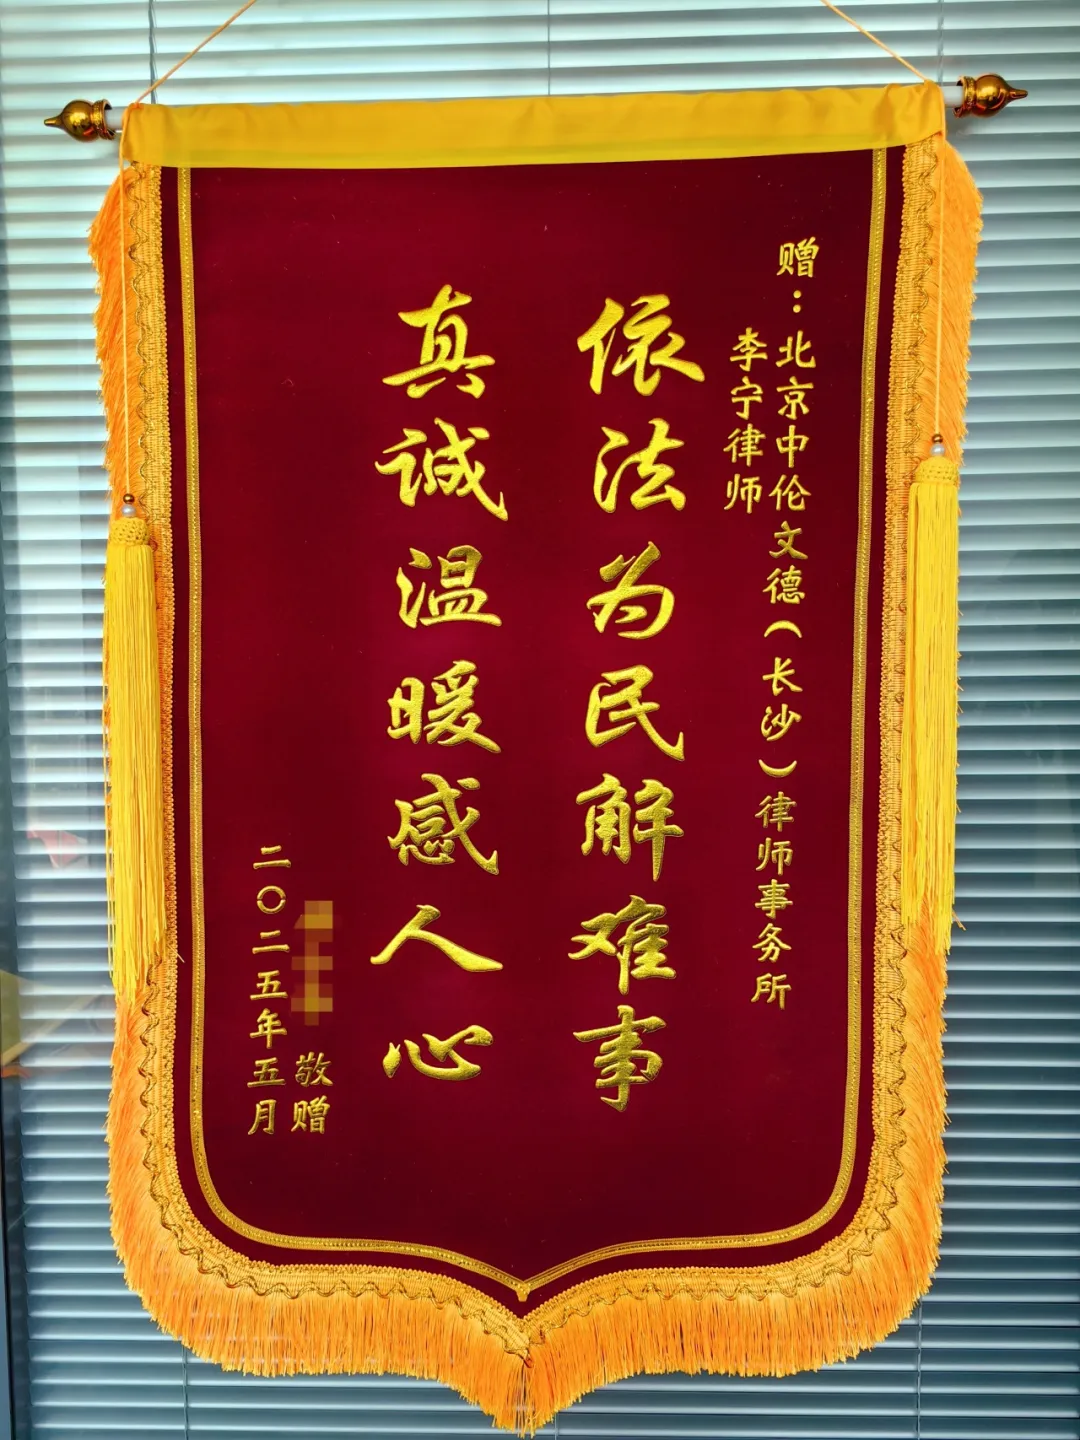 赠：北京中伦文德（长沙）律师事务所
李宁律师
依法为民解难事
真诚温暖感人心
敬赠
二〇二五年五月